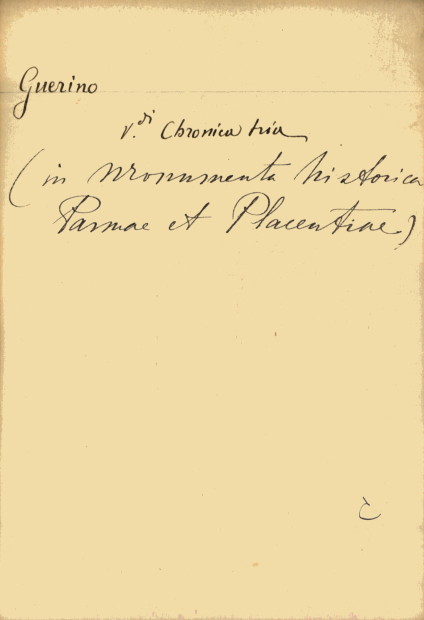 Guerino
v.di Chronica tria
(in Monumenta historica
Parmae et Placentiae)
C